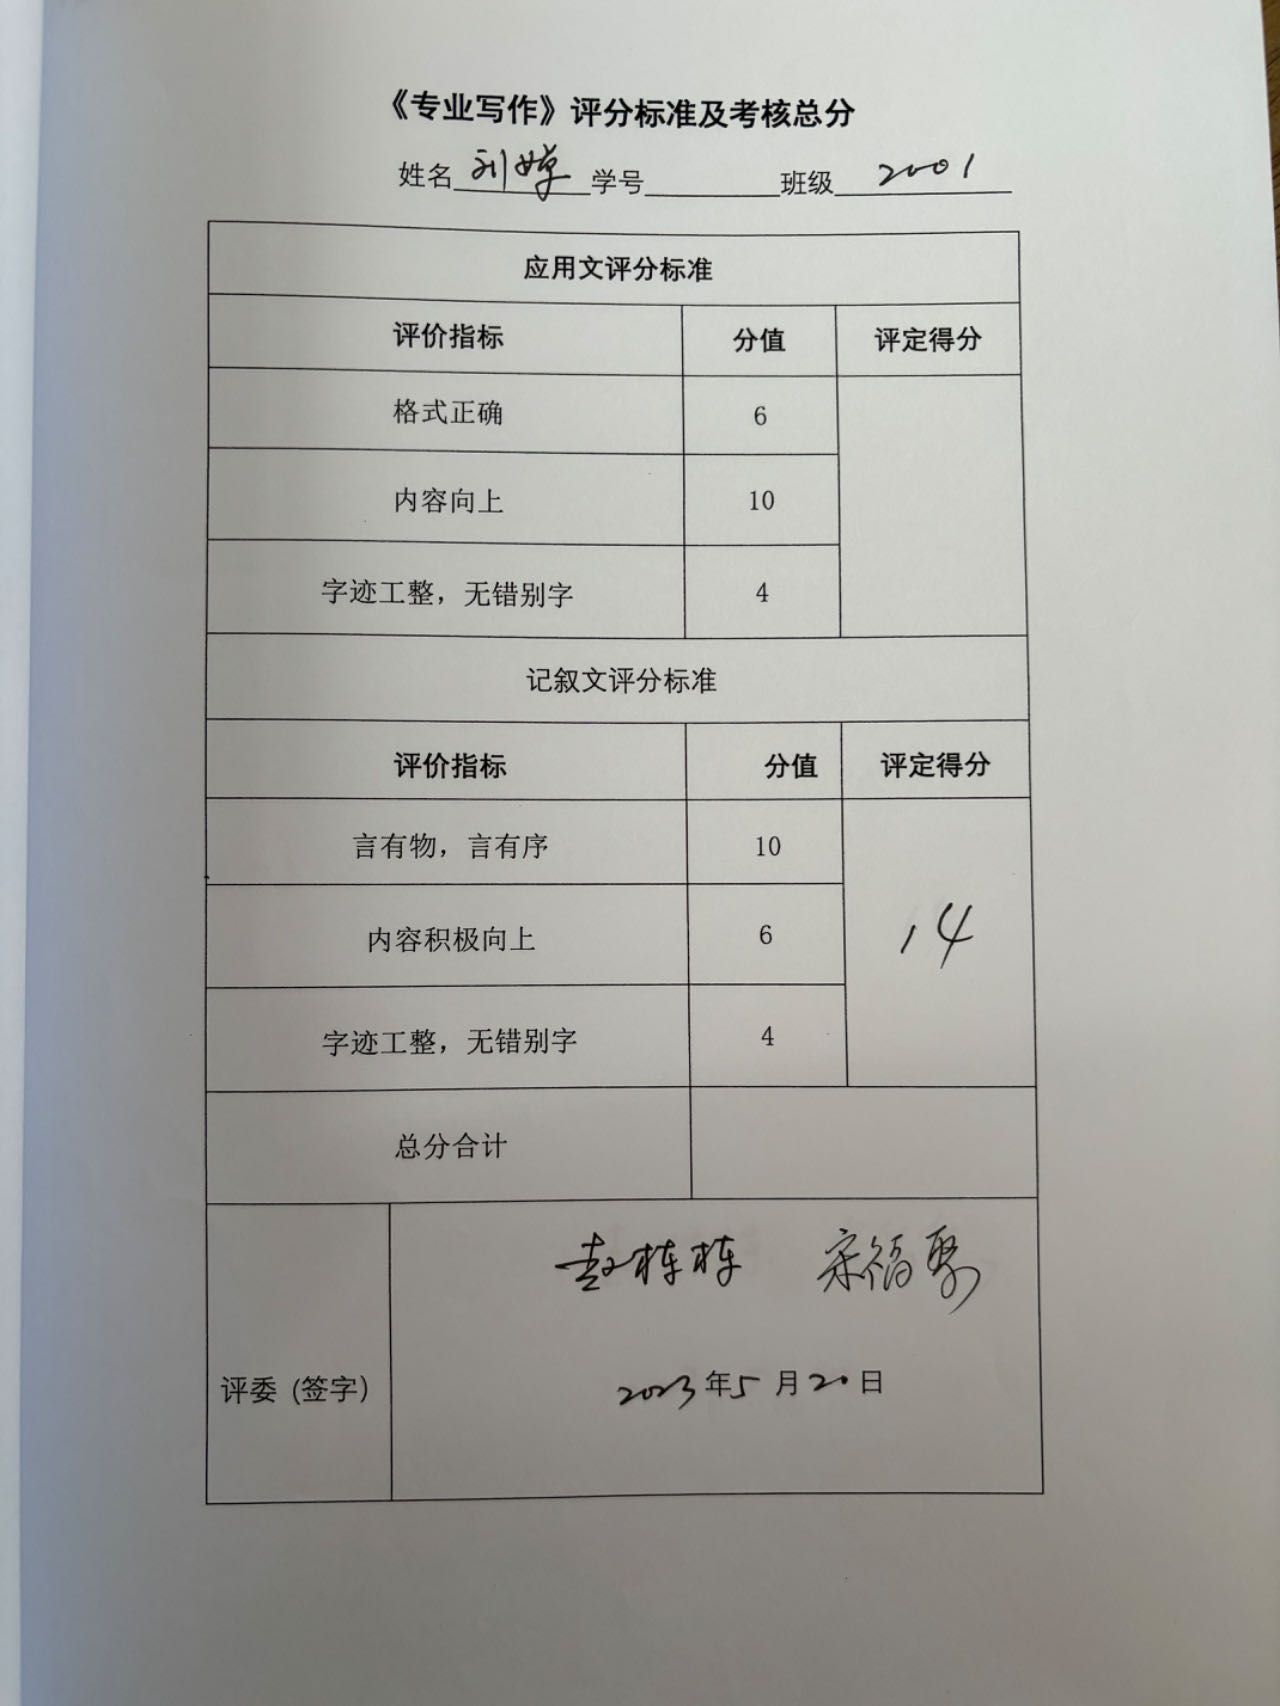 《专业写作》评分标准及考核总分
姓名 刘婷 学号 班级 2001
应用文评分标准
评价指标 分值 评定得分
格式正确 6
内容向上 10
字迹工整，无错别字 4
记叙文评分标准
评价指标 分值 评定得分
言有物，言有序 10
内容积极向上 6
14
字迹工整，无错别字 4
总分合计
赵栋栋 宋福聚
评委（签字） 2023年5月20日